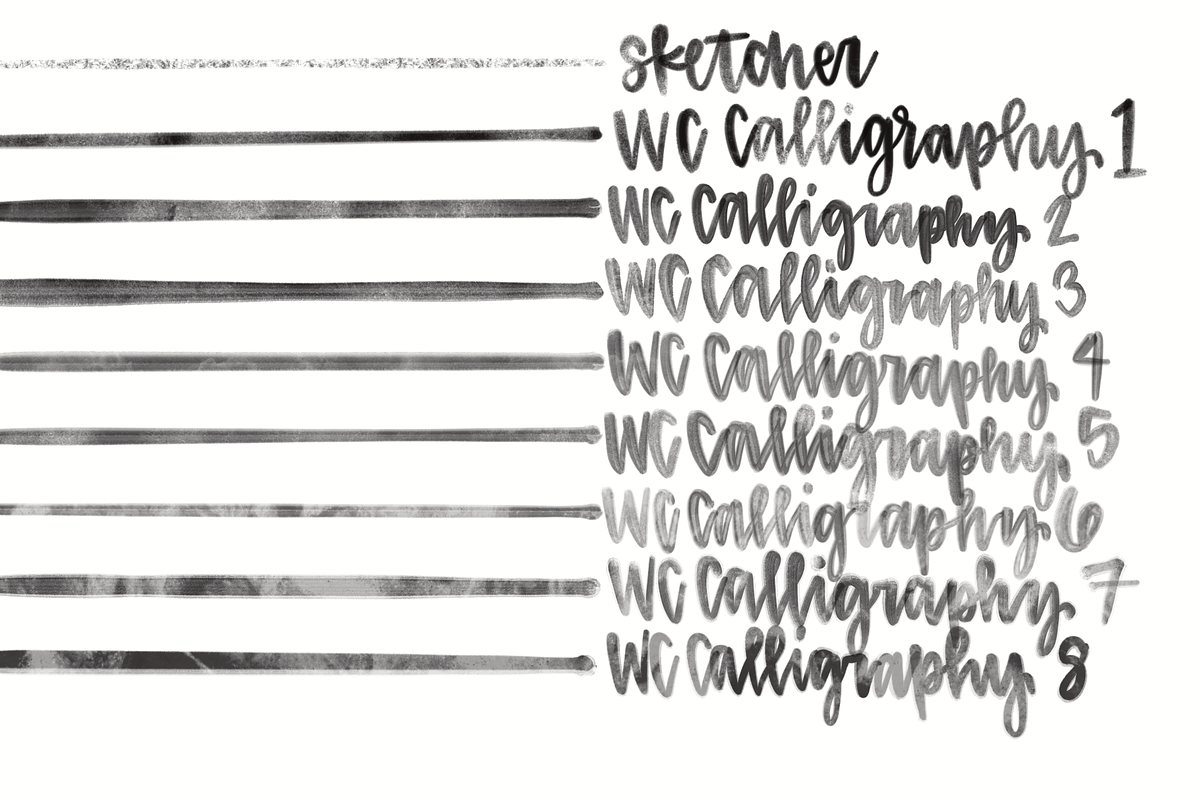 sketcher
WC Calligraphy 1
WC Calligraphy 2
WC Calligraphy 3
WC Calligraphy 4
WC Calligraphy 5
WC Calligraphy 6
WC Calligraphy 7
WC Calligraphy 8